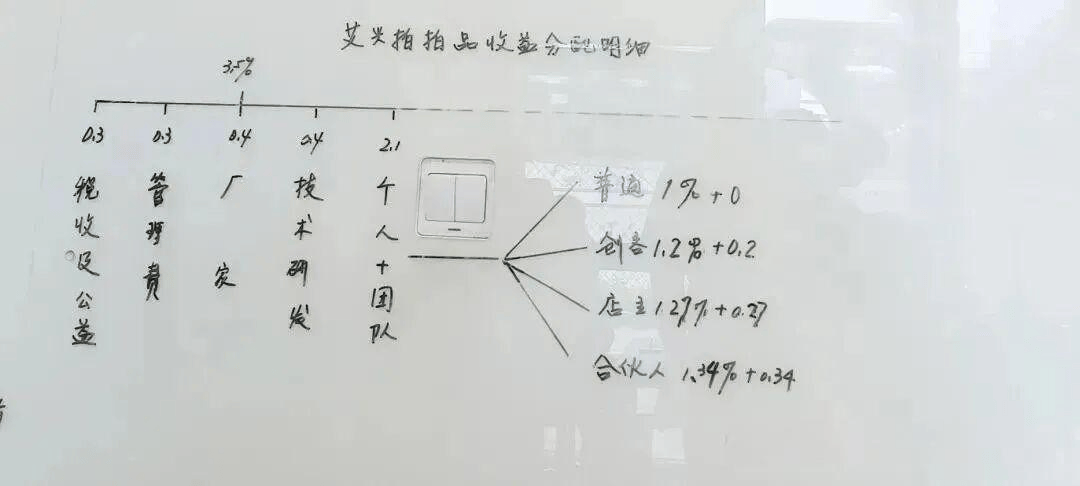 艾米拍拍品收益分配明细
3.5%
0.3 0.3 0.4 0.4 2.1
税收及公益
管理费
厂家
技术研发
个人+团队
普通 1%+0
创客 1.2%+0.2
店主 1.27%+0.27
合伙人 1.34%+0.34